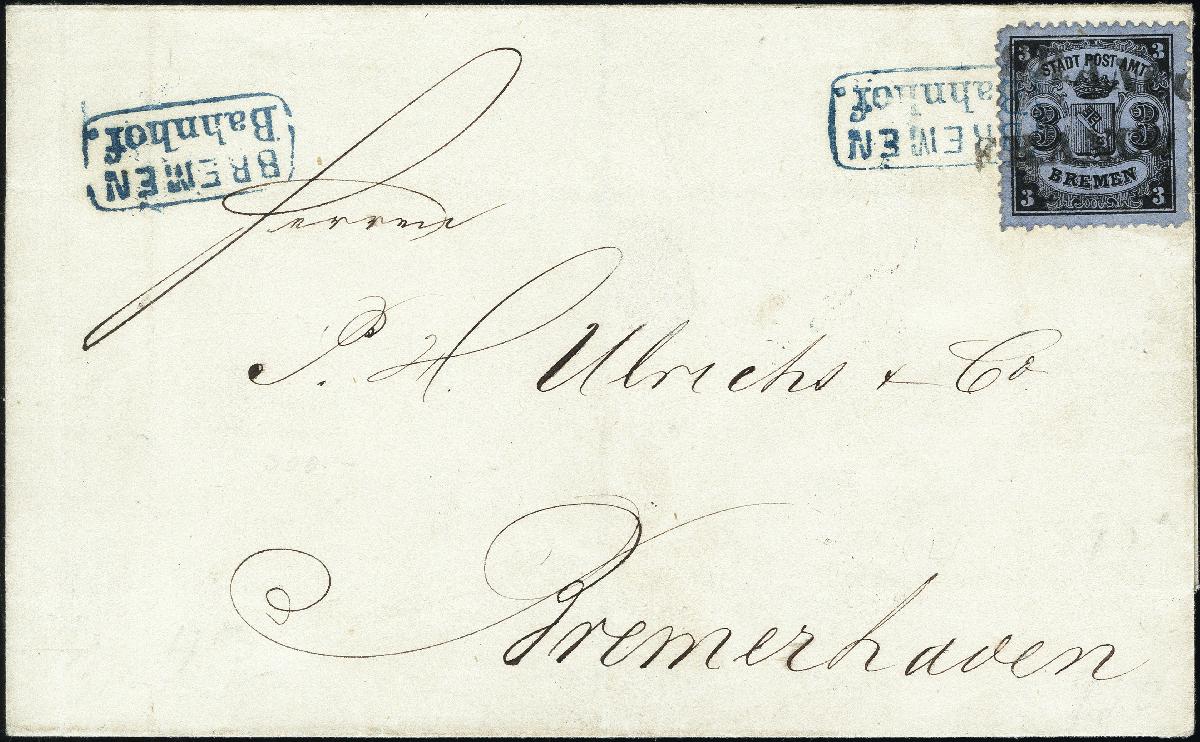 BREMEN
Bahnhof.
BREMEN
Bahnhof.
3 3
STADT POST AMT
3 3
BREMEN
3 3
Herren
J. H. Ulrichs & Co
Bremerhaven